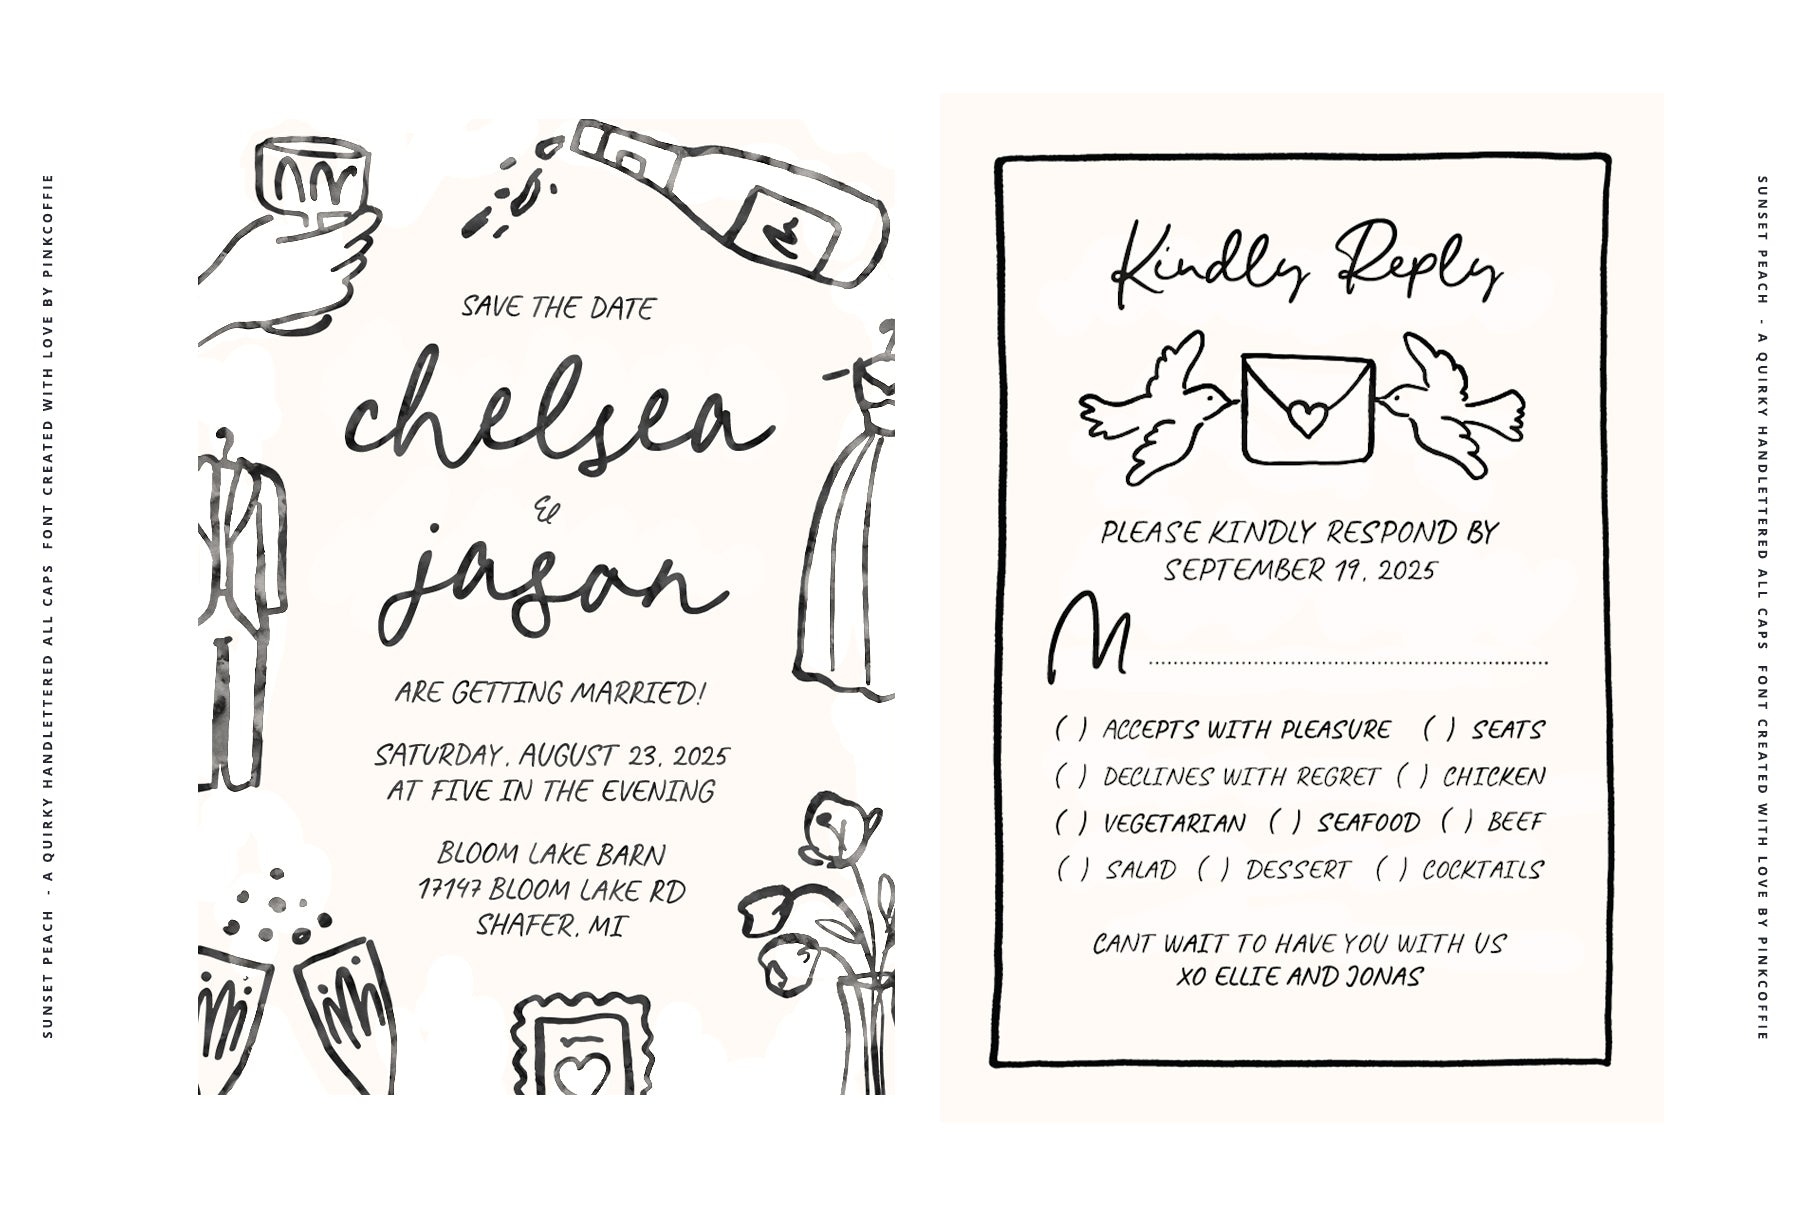 SUNSET PEACH - A QUIRKY HANDLETTERED ALL CAPS FONT CREATED WITH LOVE BY PINKCOFFIE
SAVE THE DATE
chelsea
&
jason
ARE GETTING MARRIED!
SATURDAY, AUGUST 23, 2025
AT FIVE IN THE EVENING
BLOOM LAKE BARN
17147 BLOOM LAKE RD
SHAFER, MI
Kindly Reply
PLEASE KINDLY RESPOND BY
SEPTEMBER 19, 2025
M
( ) ACCEPTS WITH PLEASURE ( ) SEATS
( ) DECLINES WITH REGRET ( ) CHICKEN
( ) VEGETARIAN ( ) SEAFOOD ( ) BEEF
( ) SALAD ( ) DESSERT ( ) COCKTAILS
CANT WAIT TO HAVE YOU WITH US
XO ELLIE AND JONAS
SUNSET PEACH - A QUIRKY HANDLETTERED ALL CAPS FONT CREATED WITH LOVE BY PINKCOFFIE